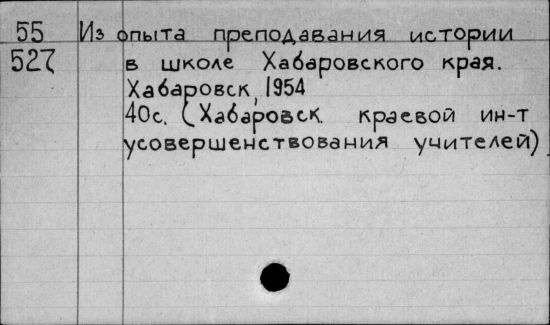 55 Из опыта преподавания истории
527 в школе Хабаровского края.
Хабаровск, 1954
40с. (Хабаровск. краевой ин-т
усовершенствования учителей)